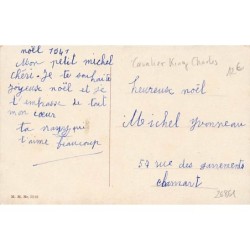 noël 1941
Mon petit michel
chéri. Je te souhaite
joyeux noël et je
t'embrasse de tout
mon cœur
ta
t'aime beaucoup
Cavalier King Charles
heureux noël
Michel Yvonneau
57 rue des
clamart